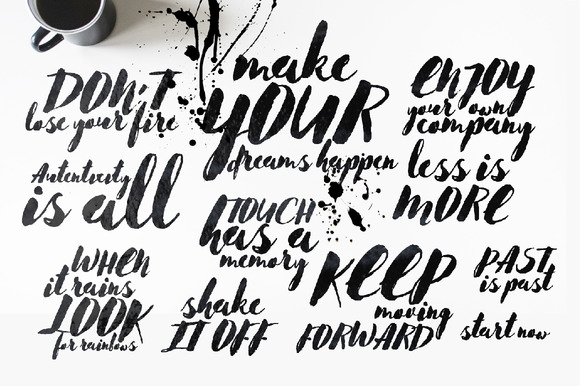 DON'T
lose your fire
make
YOUR
dreams happen
ENJOY
your own
company
Autenticity
is all
less is
MORE
TOUCH
has a
memory
WHEN
it rains
LOOK
for rainbows
shake
IT OFF
KEEP
moving
FORWARD
PAST
is past
start now